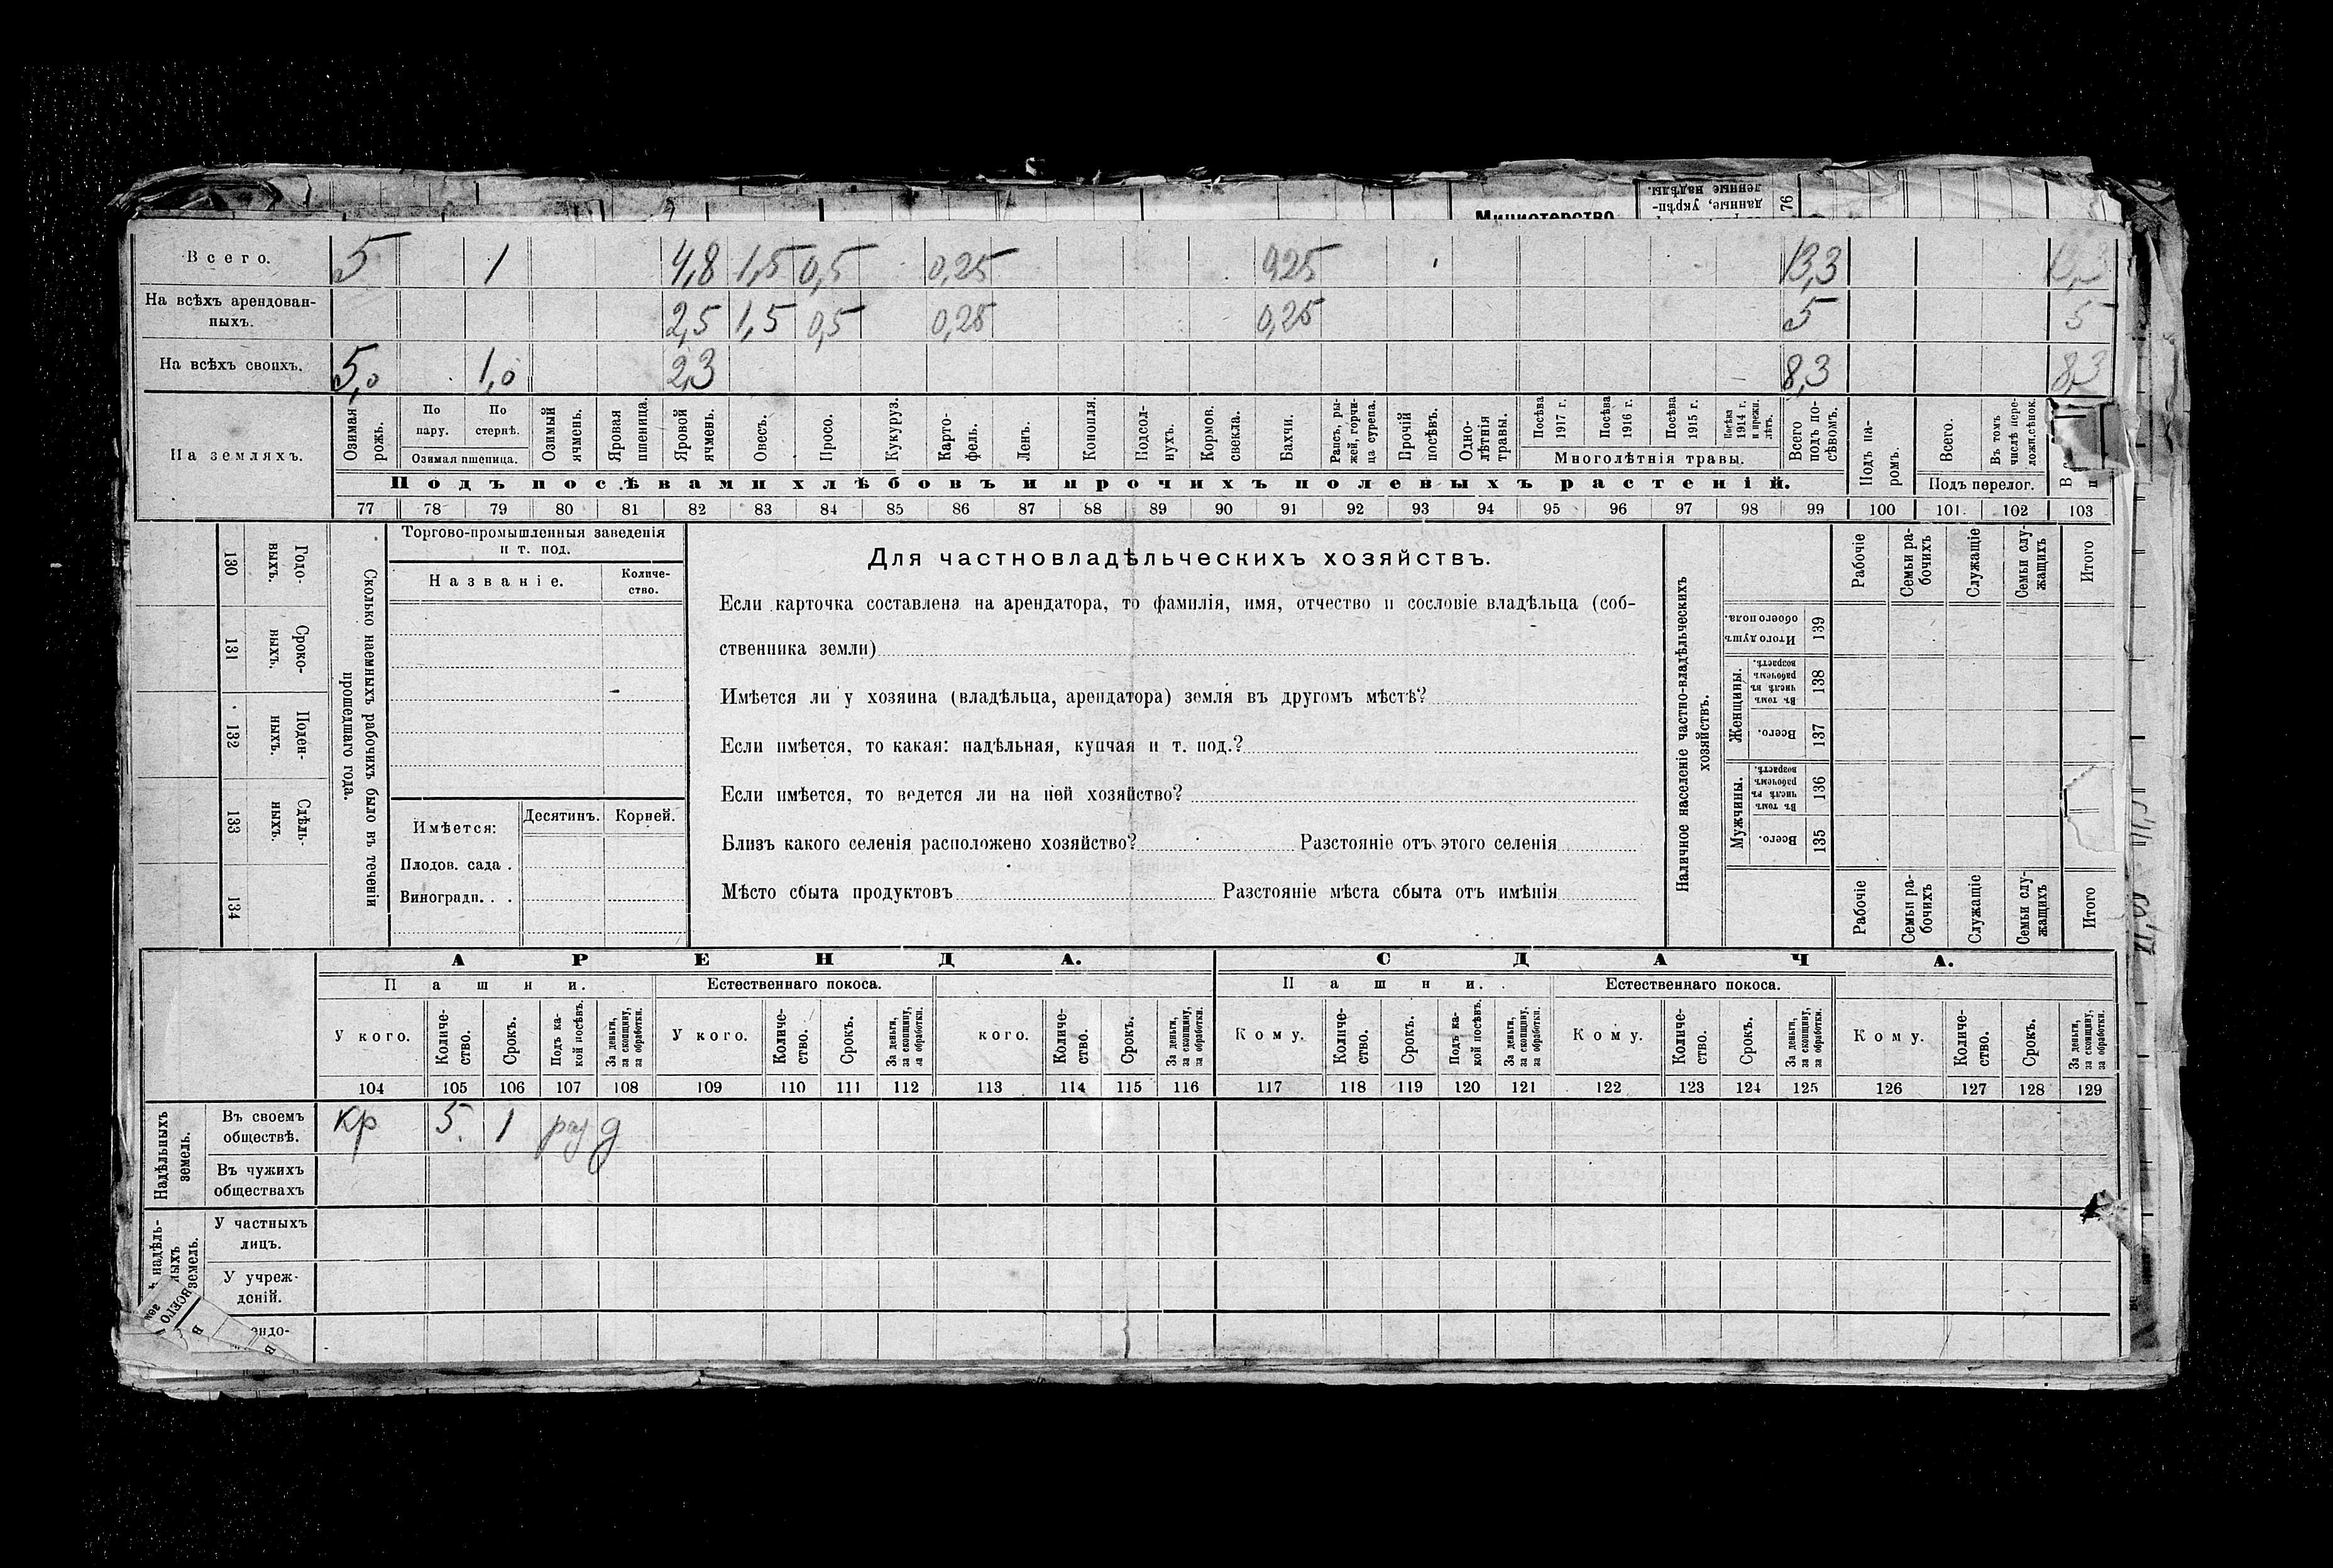 Министерство
данные, укрѣп-
ленные надѣлы.
76
Всего. 5 1 4,8 1,5 0,5 0,25 0,25 13,3 13,3
На всѣхъ арендован-
ныхъ. 2,5 1,5 0,5 0,25 0,25 5 5
На всѣхъ своихъ. 5,0 1,0 2,3 8,3 8,3
На земляхъ.
Озимая рожь.
По пару.
По стернѣ.
Озимая пшеница.
Озимый ячмень.
Яровая пшеница.
Яровой ячмень.
Овесъ.
Просо.
Кукуруз.
Карто-
фель.
Ленъ.
Конопля.
Подсол-
нухъ.
Кормов. свекла.
Бахчи.
Рапсъ, ры-
жей, горчи-
ца сурепа.
Прочій посѣвъ.
Одно-
лѣтнія травы.
Посѣва 1917 г.
Посѣва 1916 г.
Посѣва 1915 г.
Посѣва 1914 г. и прежн. лѣтъ.
Многолѣтнія травы.
Всего подъ по-
сѣвомъ.
Подъ па-
ромъ.
Всего.
Въ томъ числѣ пере-
ложн. сѣнок.
Подъ перелог.
Подъ посѣвами хлѣбовъ и прочихъ полевыхъ растеній.
77 78 79 80 81 82 83 84 85 86 87 88 89 90 91 92 93 94 95 96 97 98 99 100 101 102 103
Сколько наемныхъ рабочихъ было въ теченіи
прошедшаго года.
Годо-
выхъ.
130
Сроко-
ныхъ.
131
Поден-
ныхъ.
132
Сдѣль-
ныхъ.
133
134
Торгово-промышленныя заведенія
и т. под.
Названіе.
Количе-
ство.
Имѣется:
Десятинъ. Корней.
Плодов. сада .
Виноградн. . .
Для частновладѣльческихъ хозяйствъ.
Если карточка составлена на арендатора, то фамилія, имя, отчество и сословіе владѣльца (соб-
ственника земли)
Имѣется ли у хозяина (владѣльца, арендатора) земля въ другомъ мѣстѣ?
Если имѣется, то какая: надѣльная, купчая и т. под.?
Если имѣется, то ведется ли на ней хозяйство?
Близъ какого селенія расположено хозяйство? Разстояніе отъ этого селенія
Мѣсто сбыта продуктовъ Разстояніе мѣста сбыта отъ имѣнія
Наличное населеніе частно-владѣльческихъ
хозяйствъ.
Рабочіе
Семьи ра-
бочихъ
Служащіе
Семьи слу-
жащихъ
Итого
Итого душъ обоего пола.
139
Женщины.
Въ томъ числѣ въ рабочемъ возрастѣ.
138
Всего.
137
Мужчины.
Въ томъ числѣ въ рабочемъ возрастѣ.
136
Всего.
135
Рабочіе
Семьи ра-
бочихъ
Служащіе
Семьи слу-
жащихъ
Итого
АРЕНДА. СДАЧА.
Пашни. Естественнаго покоса. Пашни. Естественнаго покоса.
У кого.
Количе-
ство.
Срокъ.
Подъ ка-
кой посѣвъ.
За деньги, за скопщину, за обработки.
У кого.
Количе-
ство.
Срокъ.
За деньги, за скопщину, за обработки.
кого.
Количе-
ство.
Срокъ.
За деньги, за скопщину, за обработки.
Кому.
Количе-
ство.
Срокъ.
Подъ ка-
кой посѣвъ.
За деньги, за скопщину, за обработки.
Кому.
Количе-
ство.
Срокъ.
За деньги, за скопщину, за обработки.
Кому.
Количе-
ство.
Срокъ.
За деньги, за скопщину, за обработки.
104 105 106 107 108 109 110 111 112 113 114 115 116 117 118 119 120 121 122 123 124 125 126 127 128 129
Надѣльныхъ
земель.
Въ своемъ
обществѣ. кр 5. 1 раз д
Въ чужихъ
обществахъ
надѣль-
ныхъ
земель.
У частныхъ
лицъ.
У учреж-
деній.
ВСЕГО
ендо-